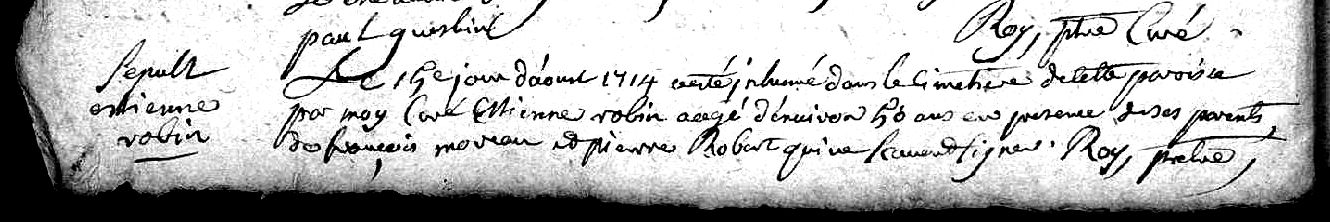 paul guesbin
Roy, ptre Curé
Sepult
estienne
robin
Le 15e jour d'aoust 1714 a esté inhumé dans le cimetiere de cette paroisse
par moy Curé Estienne robin aagé d'environ 50 ans en presence de ses parents
de françois moreau et pierre Robert qui ne scavent signer. Roy, prebtre,